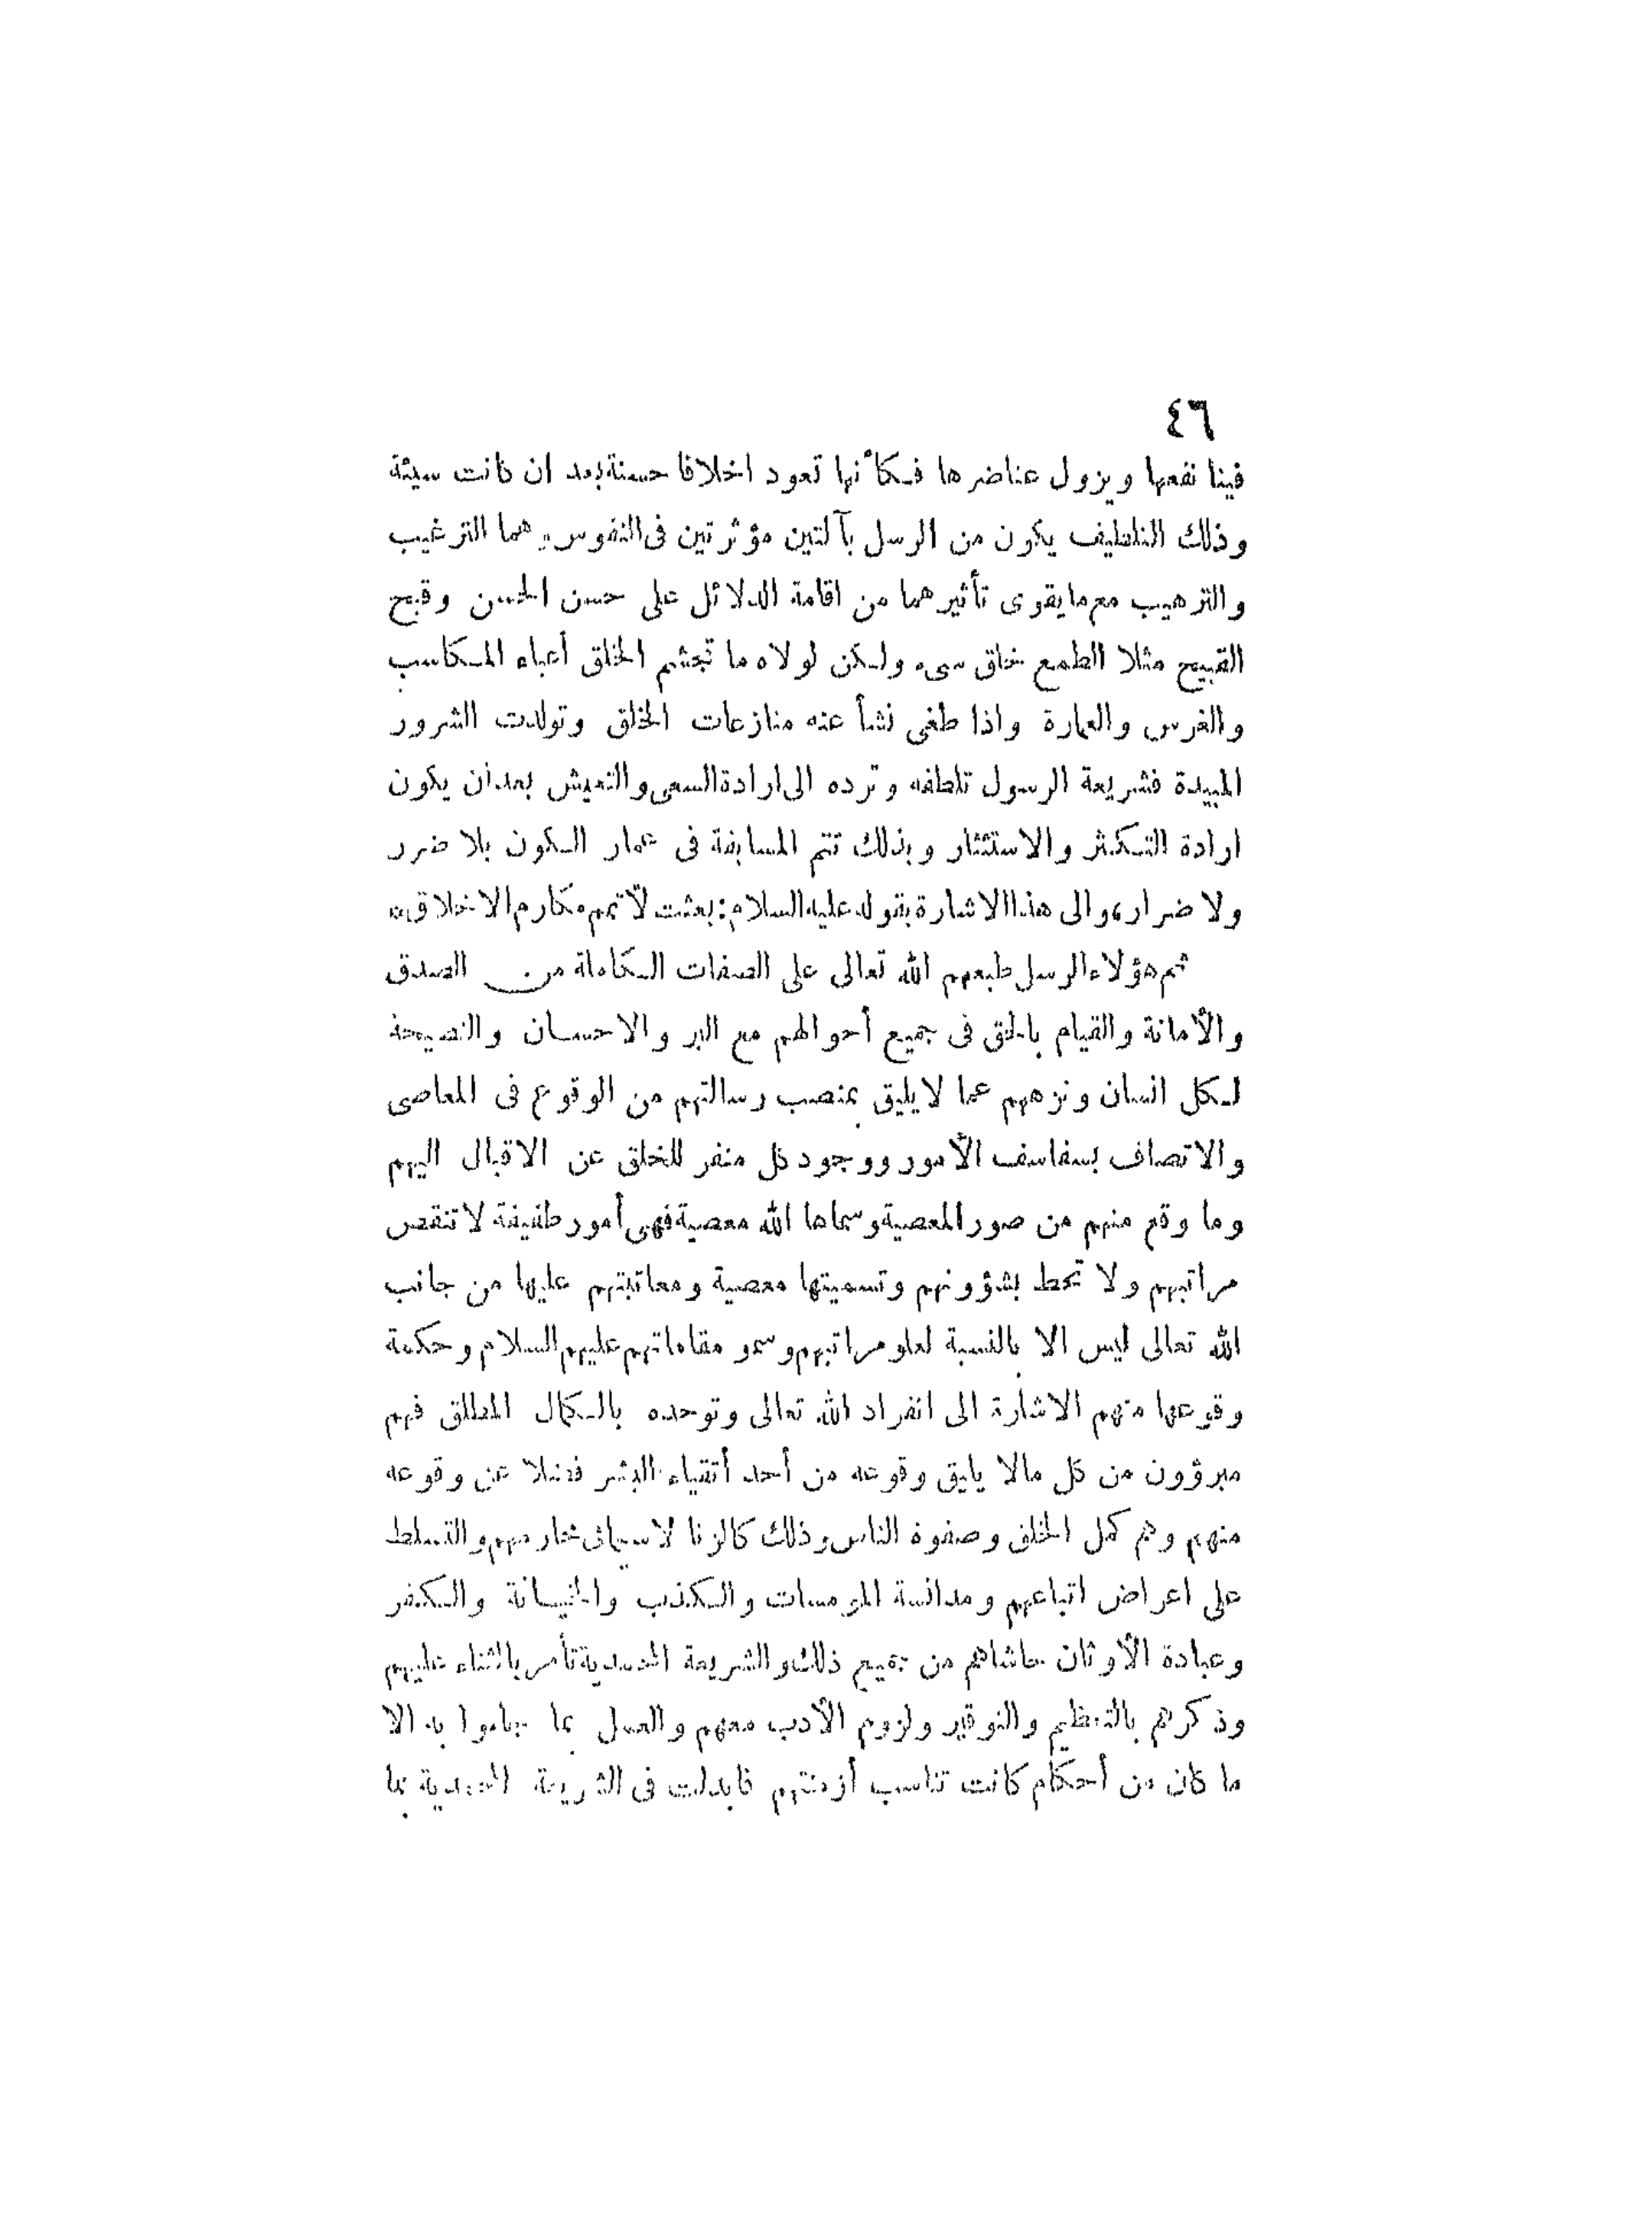 ٤٦
فينا نفعها ويزول عنا ضررها فكأنها تعود اخلاقا حسنة بعد ان كانت سيئة
وذلك التلطيف يكون من الرسل بآلتين مؤثرتين في النفوس وهما الترغيب
والترهيب مع ما يقوى تأثيرهما من اقامة الدلائل على حسن الحسن وقبح
القبيح مثلا الطمع خلق سيء ولكن لولاه ما تجشم الخلق أعباء المكاسب
والغرس والعمارة واذا طغى نشأ عنه منازعات الخلق وتولدت الشرور
المبيدة فشريعة الرسول تلطفه وترده الى ارادة السعى والتعيش بعد أن يكون
ارادة التكثر والاستئثار وبذلك تتم المسابقة في عمار الكون بلا ضرر
ولا ضرار، والى هذا الاشارة بقوله عليه السلام: بعثت لأتمم مكارم الاخلاق،
ثم هؤلاء الرسل طبعهم الله تعالى على الصفات الكاملة من الصدق
والأمانة والقيام بالحق في جميع أحوالهم مع البر والاحسان والنصيحة
لكل انسان ونزههم عما لا يليق بمنصب رسالتهم من الوقوع في المعاصى
والاتصاف بسفاسف الأمور ووجود كل منفر للخلق عن الاقبال اليهم
وما وقع منهم من صور المعصية وسماها الله معصية فهى أمور طفيفة لا تنقص
مراتبهم ولا تحط بشؤونهم وتسميتها معصية ومعاتبتهم عليها من جانب
الله تعالى ليس الا بالنسبة لعلو مراتبهم وسمو مقاماتهم عليهم السلام وحكمة
وقوعها منهم الاشارة الى انفراد الله تعالى وتوحده بالكمال المطلق فهم
مبرؤون من كل مالا يليق وقوعه من أحد أتقياء البشر فضلا عن وقوعه
منهم وهم كمل الخلق وصفوة الناس وذلك كالزنا لا سيما في محارمهم والتسلط
على اعراض اتباعهم ومدانسة المومسات والكذب والخيانة والكفر
وعبادة الأوثان حاشاهم من جميع ذلك والشريعة المحمدية تأمر بالثناء عليهم
وذكرهم بالتعظيم والتوقير ولزوم الأدب معهم والعمل بما جاءوا به الا
ما كان من أحكام كانت تناسب أزمنتهم فابدلت في الشريعة المحمدية بما